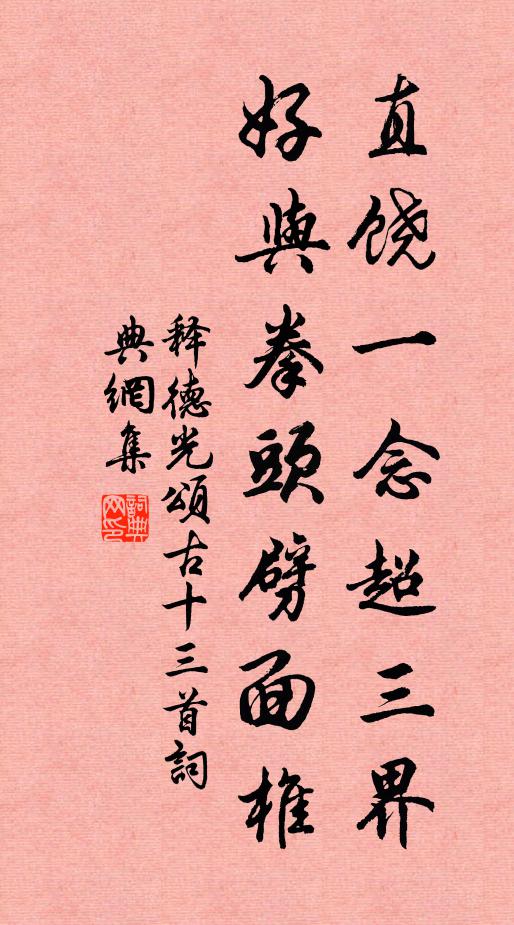 直饶一念超三界
好與拳頭劈面椎
释德光頌古十三首詞
典網集
詞典网印